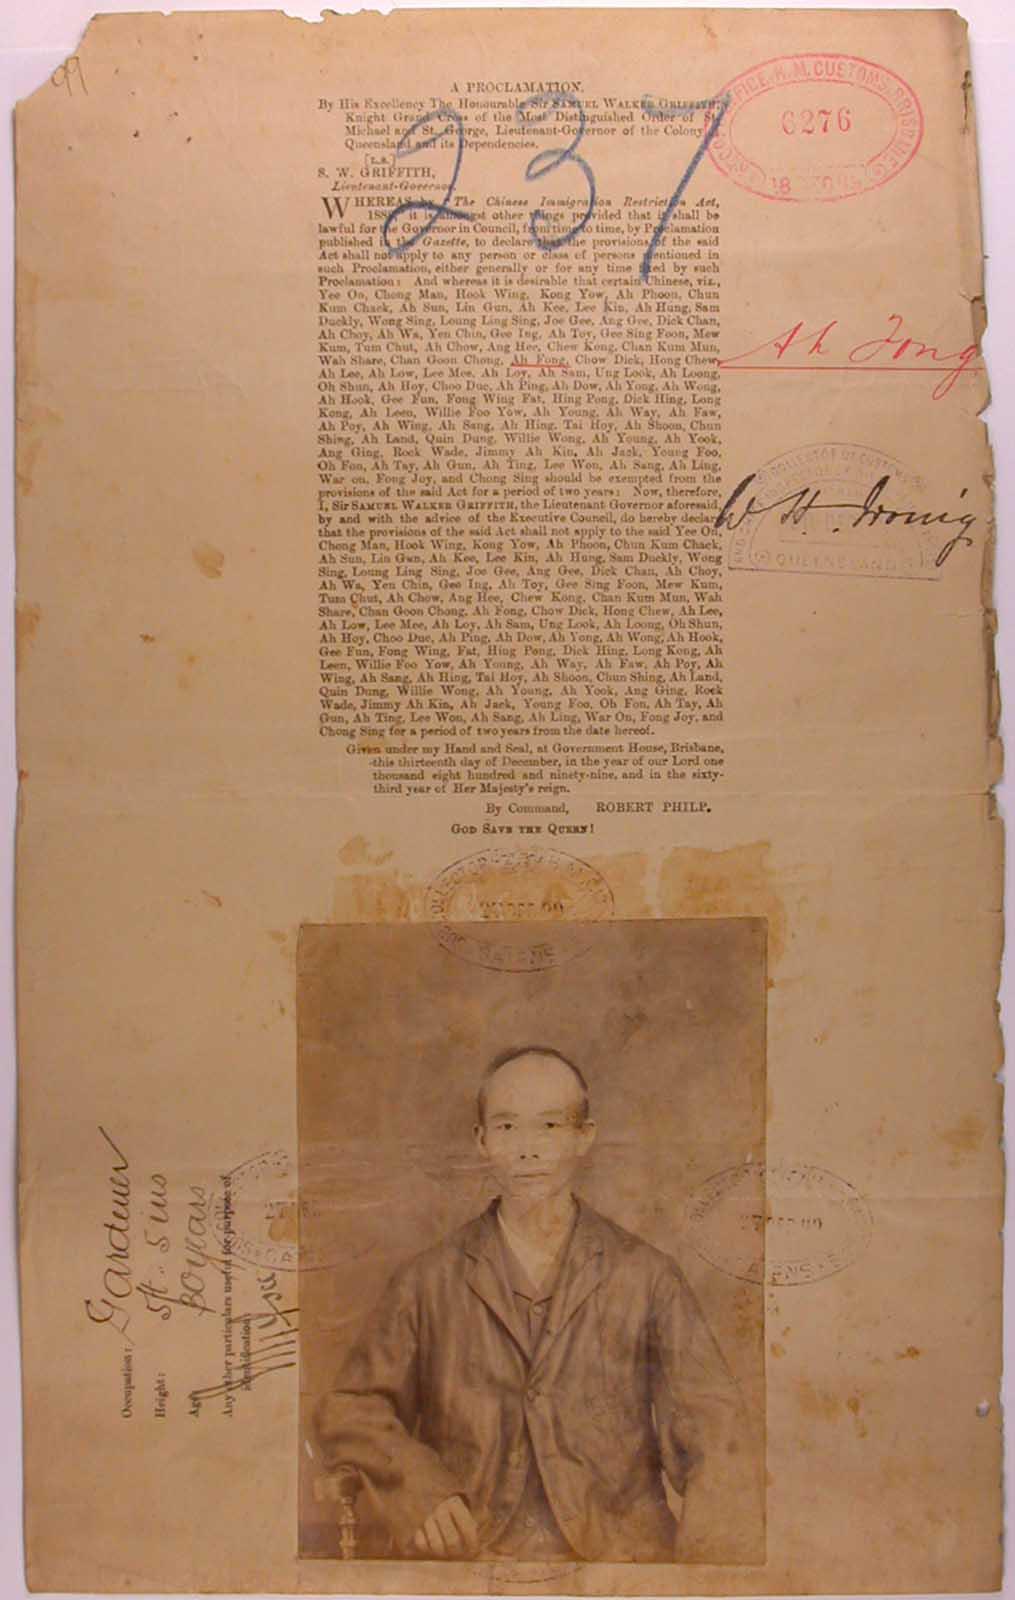 99
237
6276
A PROCLAMATION.
By His Excellency The Honourable Sir SAMUEL WALKER GRIFFITH,
Knight Grand Cross of the Most Distinguished Order of St.
Michael and St. George, Lieutenant-Governor of the Colony
Queensland and its Dependencies.
[L.S.]
S. W. GRIFFITH,
Lieutenant-Governor.
WHEREAS by "The Chinese Immigration Restriction Act,
it is amongst other things provided that it shall be
lawful for the Governor in Council, from time to time, by Proclamation
published in the Gazette, to declare that the provisions of the said
Act shall not apply to any person or class of persons mentioned in
such Proclamation, either generally or for any time fixed by such
Proclamation: And whereas it is desirable that certain Chinese, viz.,
Yee On, Chong Man, Hook Wing, Kong Yow, Ah Phoon, Chun
Kum Chack, Ah Sun, Lin Gun, Ah Kee, Lee Kin, Ah Hung, Sam
Duckly, Wong Sing, Loung Ling Sing, Joe Gee, Ang Gee, Dick Chan,
Ah Choy, Ah Wa, Yen Chin, Gee Ing, Ah Toy, Gee Sing Foon, Mew
Kum, Tum Chut, Ah Chow, Ang Hee, Chew Kong, Chan Kum Mun,
Wah Share, Chan Goon Chong, Ah Fong, Chow Dick, Hong Chew,
Ah Fong
Ah Lee, Ah Low, Lee Mee, Ah Loy, Ah Sam, Ung Look, Ah Loong,
Oh Shun, Ah Hoy, Choo Duc, Ah Ping, Ah Dow, Ah Yong, Ah Wong,
Ah Hook, Gee Fun, Fong Wing Fat, Hing Pong, Dick Hing, Long
Kong, Ah Leen, Willie Foo Yow, Ah Young, Ah Way, Ah Faw,
Ah Poy, Ah Wing, Ah Sang, Ah Hing, Tai Hoy, Ah Shoon, Chun
Shing, Ah Land, Quin Dung, Willie Wong, Ah Young, Ah Yook,
Ang Ging, Rock Wade, Jimmy Ah Kin, Ah Jack, Young Foo,
Oh Fon, Ah Tay, Ah Gun, Ah Ting, Lee Won, Ah Sang, Ah Ling,
War on, Fong Joy, and Chong Sing should be exempted from the
provisions of the said Act for a period of two years: Now, therefore,
I, Sir SAMUEL WALKER GRIFFITH, the Lieutenant Governor aforesaid,
by and with the advice of the Executive Council, do hereby declare
that the provisions of the said Act shall not apply to the said Yee On,
Chong Man, Hook Wing, Kong Yow, Ah Phoon, Chun Kum Chack,
Ah Sun, Lin Gun, Ah Kee, Lee Kin, Ah Hung, Sam Duckly, Wong
Sing, Loung Ling Sing, Joe Gee, Ang Gee, Dick Chan, Ah Choy,
Ah Wa, Yen Chin, Gee Ing, Ah Toy, Gee Sing Foon, Mew Kum,
Tum Chut, Ah Chow, Ang Hee, Chew Kong, Chan Kum Mun, Wah
Share, Chan Goon Chong, Ah Fong, Chow Dick, Hong Chew, Ah Lee,
Ah Low, Lee Mee, Ah Loy, Ah Sam, Ung Look, Ah Loong, Oh Shun,
Ah Hoy, Choo Duc, Ah Ping, Ah Dow, Ah Yong, Ah Wong, Ah Hook,
Gee Fun, Fong Wing, Fat, Hing Pong, Dick Hing, Long Kong, Ah
Leen, Willie Foo Yow, Ah Young, Ah Way, Ah Faw, Ah Poy, Ah
Wing, Ah Sang, Ah Hing, Tai Hoy, Ah Shoon, Chun Shing, Ah Land,
Quin Dung, Willie Wong, Ah Young, Ah Yook, Ang Ging, Rock
Wade, Jimmy Ah Kin, Ah Jack, Young Foo, Oh Fon, Ah Tay, Ah
Gun, Ah Ting, Lee Won, Ah Sang, Ah Ling, War On, Fong Joy, and
Chong Sing for a period of two years from the date hereof.
Given under my Hand and Seal, at Government House, Brisbane,
this thirteenth day of December, in the year of our Lord one
thousand eight hundred and ninety-nine, and in the sixty-
third year of Her Majesty's reign.
By Command, ROBERT PHILP.
GOD SAVE THE QUEEN!
W H. Irving
COLLECTOR OF CUSTOMS
QUEENSLAND
Occupation: Gardener
Height: 5ft. 5 ins
Age 30 years
Any other particulars useful for purpose of
identification: